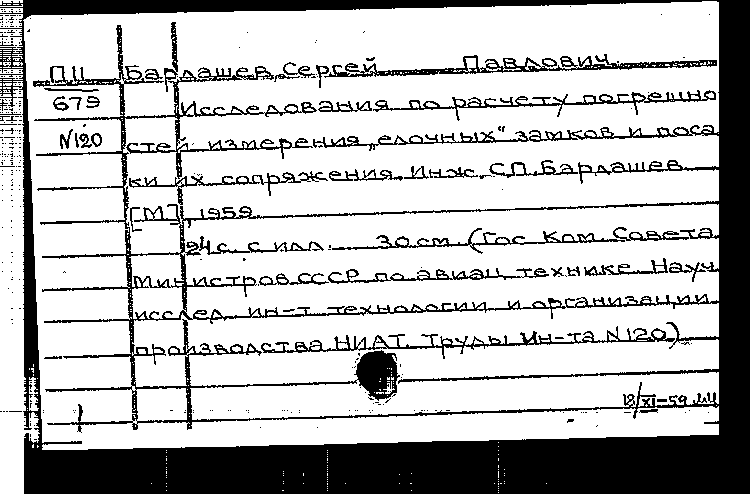 П11 Бардашев, Сергей Павлович.
679 Исследования по расчету погрешно
N120 стей измерения „елочных" замков и поса
ки их сопряжения. Инж. С.П. Бардашев.
[М], 1959.
24 с. с илл. 30 см. (Гос Ком. Совета
Министров СССР по авиац технике. Науч
исслед. ин-т технологии и организации
производства НИАТ. Труды Ин-та N120)
18/XI-59